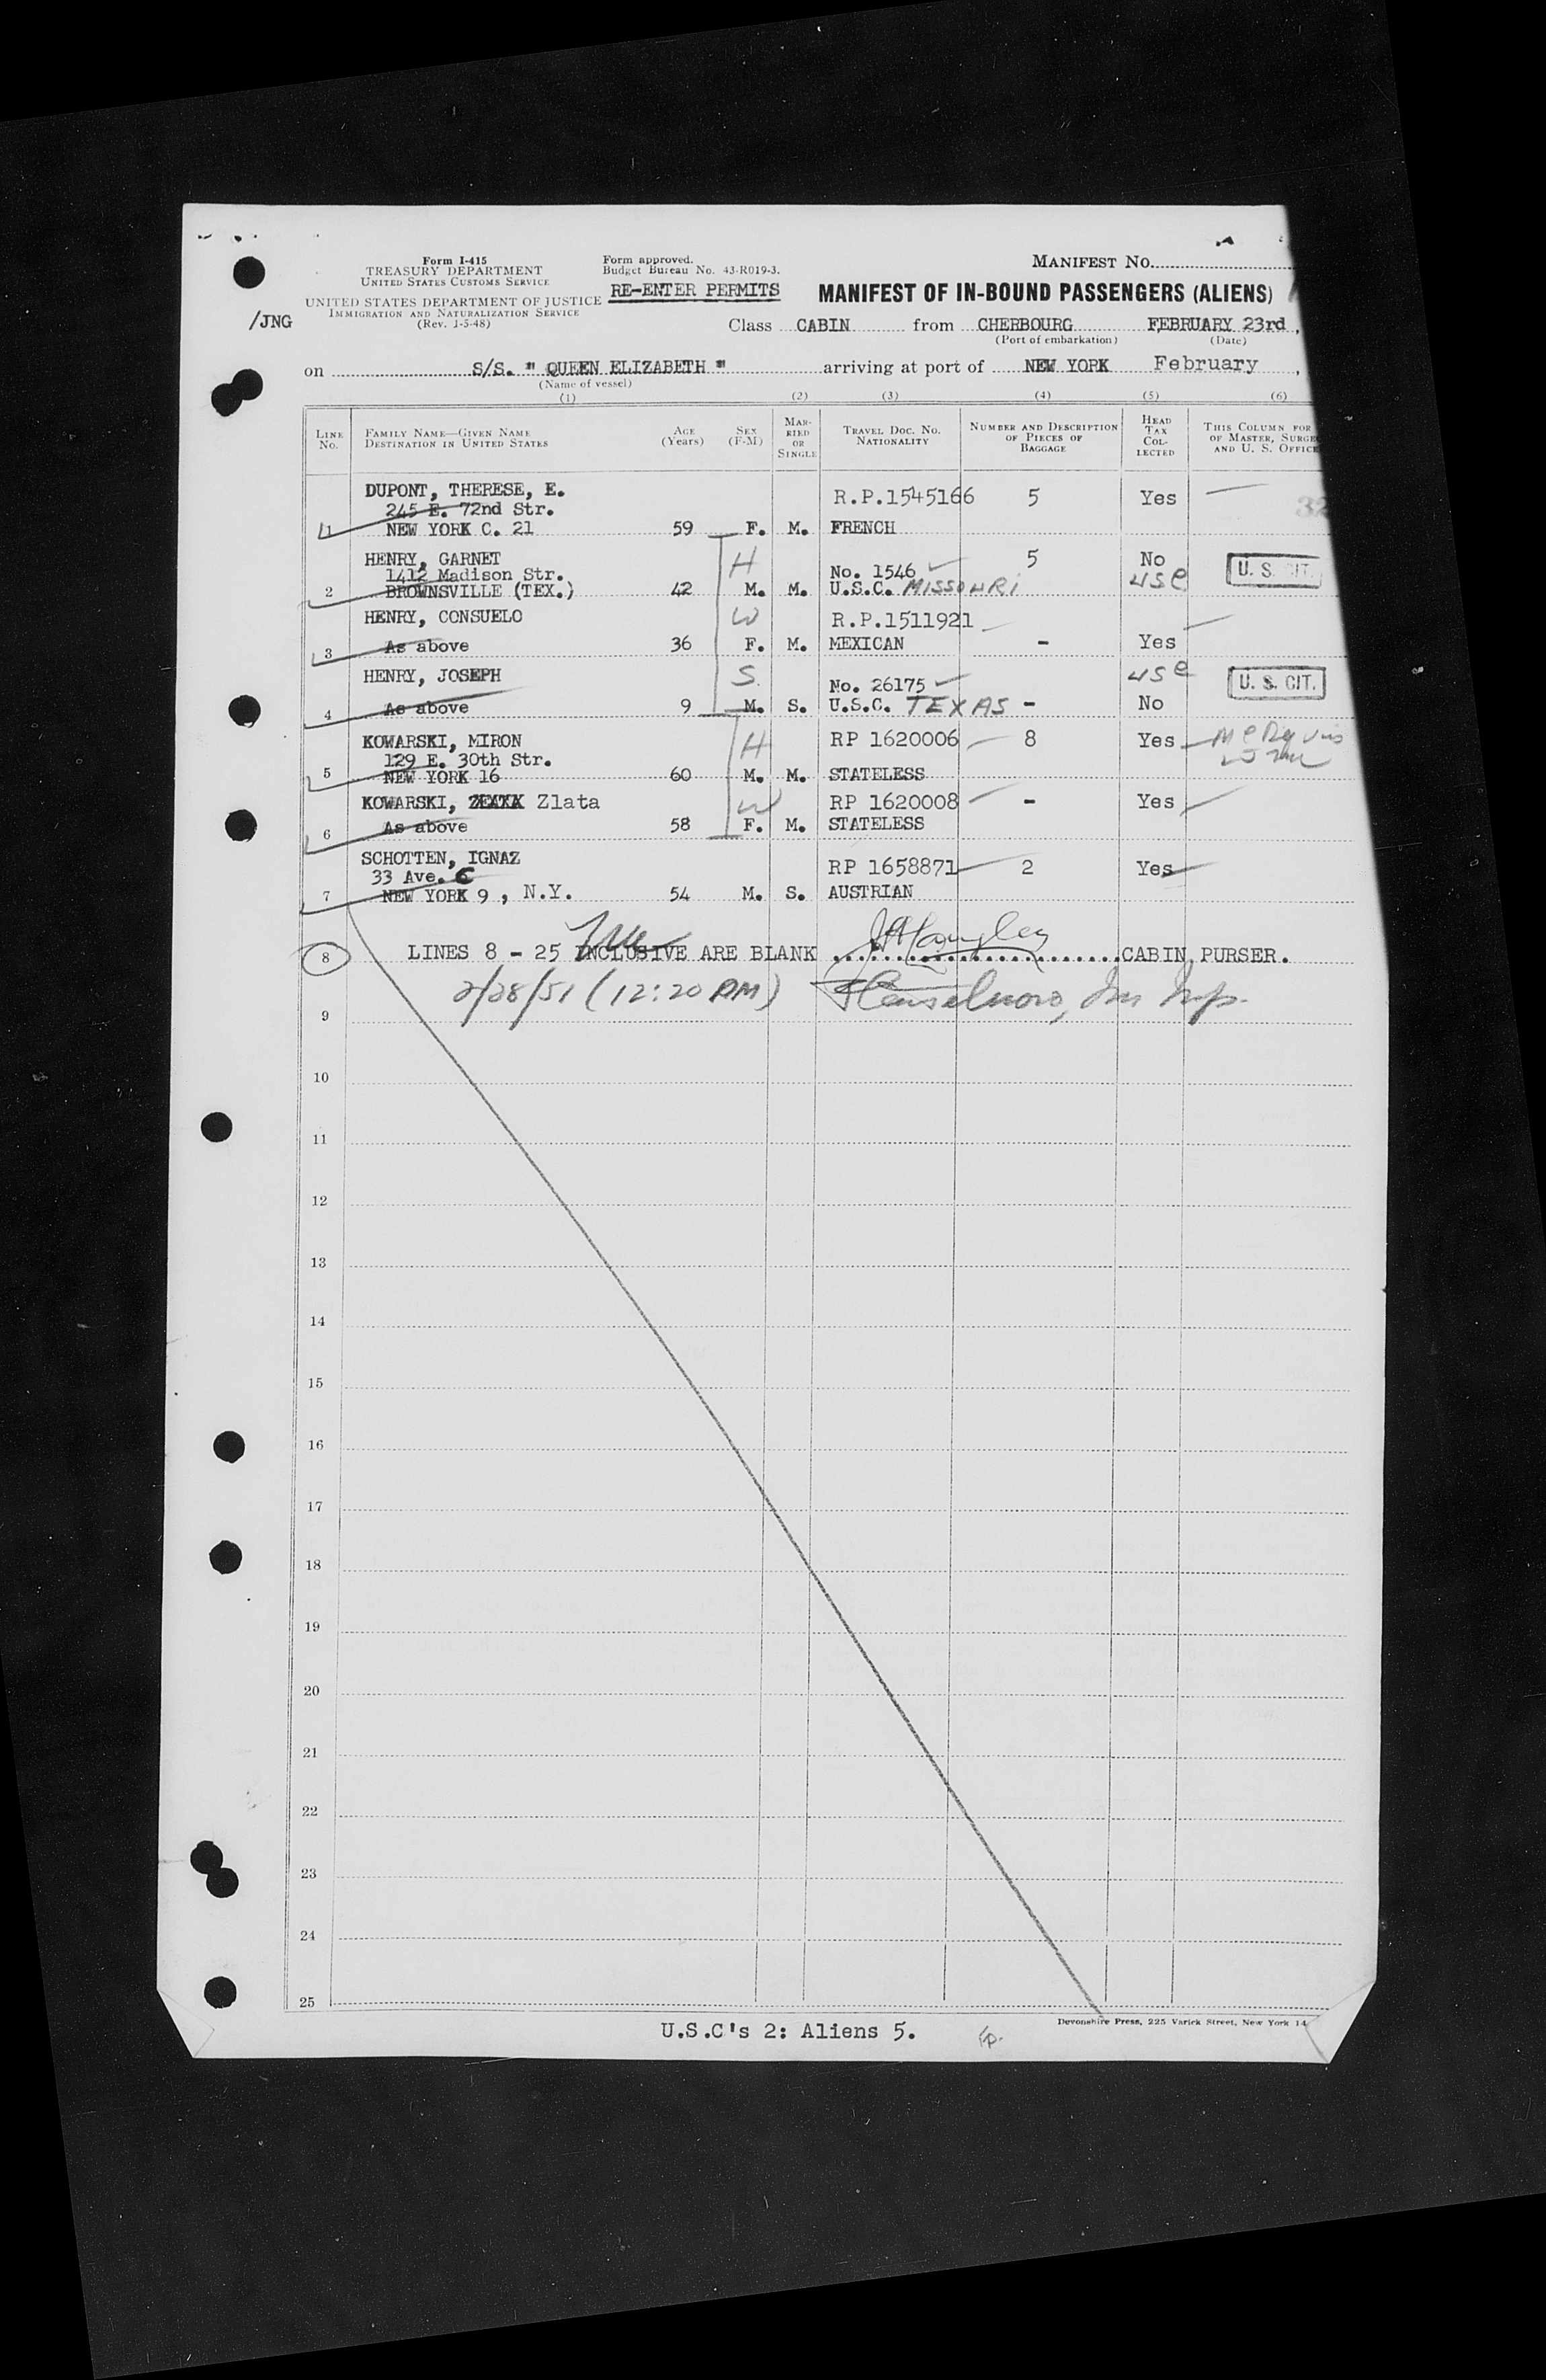 Form I-415
TREASURY DEPARTMENT
UNITED STATES CUSTOMS SERVICE
UNITED STATES DEPARTMENT OF JUSTICE
IMMIGRATION AND NATURALIZATION SERVICE
(Rev. 1-5-48)
/JNG
Form approved.
Budget Bureau No. 43-R019-3.
RE-ENTER PERMITS
MANIFEST NO.
MANIFEST OF IN-BOUND PASSENGERS (ALIENS)
Class CABIN from CHERBOURG FEBRUARY 23rd,
(Port of embarkation) (Date)
on S/S. " QUEEN ELIZABETH " arriving at port of NEW YORK February,
(Name of vessel)
(1) (2) (3) (4) (5) (6)
LINE No. FAMILY NAME—GIVEN NAME DESTINATION IN UNITED STATES AGE (Years) SEX (F-M) MARRIED OR SINGLE TRAVEL DOC. NO. NATIONALITY NUMBER AND DESCRIPTION OF PIECES OF BAGGAGE HEAD TAX COLLECTED THIS COLUMN FOR OF MASTER, AND U. S.
DUPONT, THERESE, E. R.P.1545166 5 Yes
245 E. 72nd Str.
1 NEW YORK C. 21 59 F. M. FRENCH
HENRY, GARNET H 5 No
1412 Madison Str. No. 1546 usc U. S. CIT.
2 BROWNSVILLE (TEX.) 42 M. M. U.S.C. MISSOURI
HENRY, CONSUELO W R.P.1511921
3 As above 36 F. M. MEXICAN - Yes
HENRY, JOSEPH S. No. 26175 usc U. S. CIT.
4 As above 9 M. S. U.S.C. TEXAS - No
KOWARSKI, MIRON H RP 1620006 8 Yes
129 E. 30th Str.
5 NEW YORK 16 60 M. M. STATELESS
KOWARSKI, Zlata W RP 1620008 - Yes
6 As above 58 F. M. STATELESS
SCHOTTEN, IGNAZ
33 Ave. C RP 1658871 2 Yes
7 NEW YORK 9, N.Y. 54 M. S. AUSTRIAN
8 LINES 8 - 25 INCLUSIVE ARE BLANK CABIN PURSER.
2/28/51 (12:20 PM)
9
10
11
12
13
14
15
16
17
18
19
20
21
22
23
24
25
U.S.C's 2: Aliens 5.
Devonshire Press, 225 Varick Street, New York 14